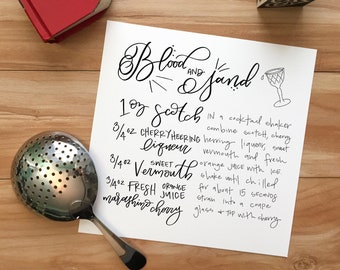 Blood AND Sand
1 oz Scotch
3/4 oz CHERRY HEERING
liqueur
3/4 oz SWEET
Vermouth
3/4 oz FRESH ORANGE
JUICE
maraschino cherry
IN a cocktail shaker
combine scotch, cherry
herring liqueur, sweet
vermouth and fresh
orange juice with ice
shake until chilled
for about 15 seconds
strain into a coupe
glass & top with cherry